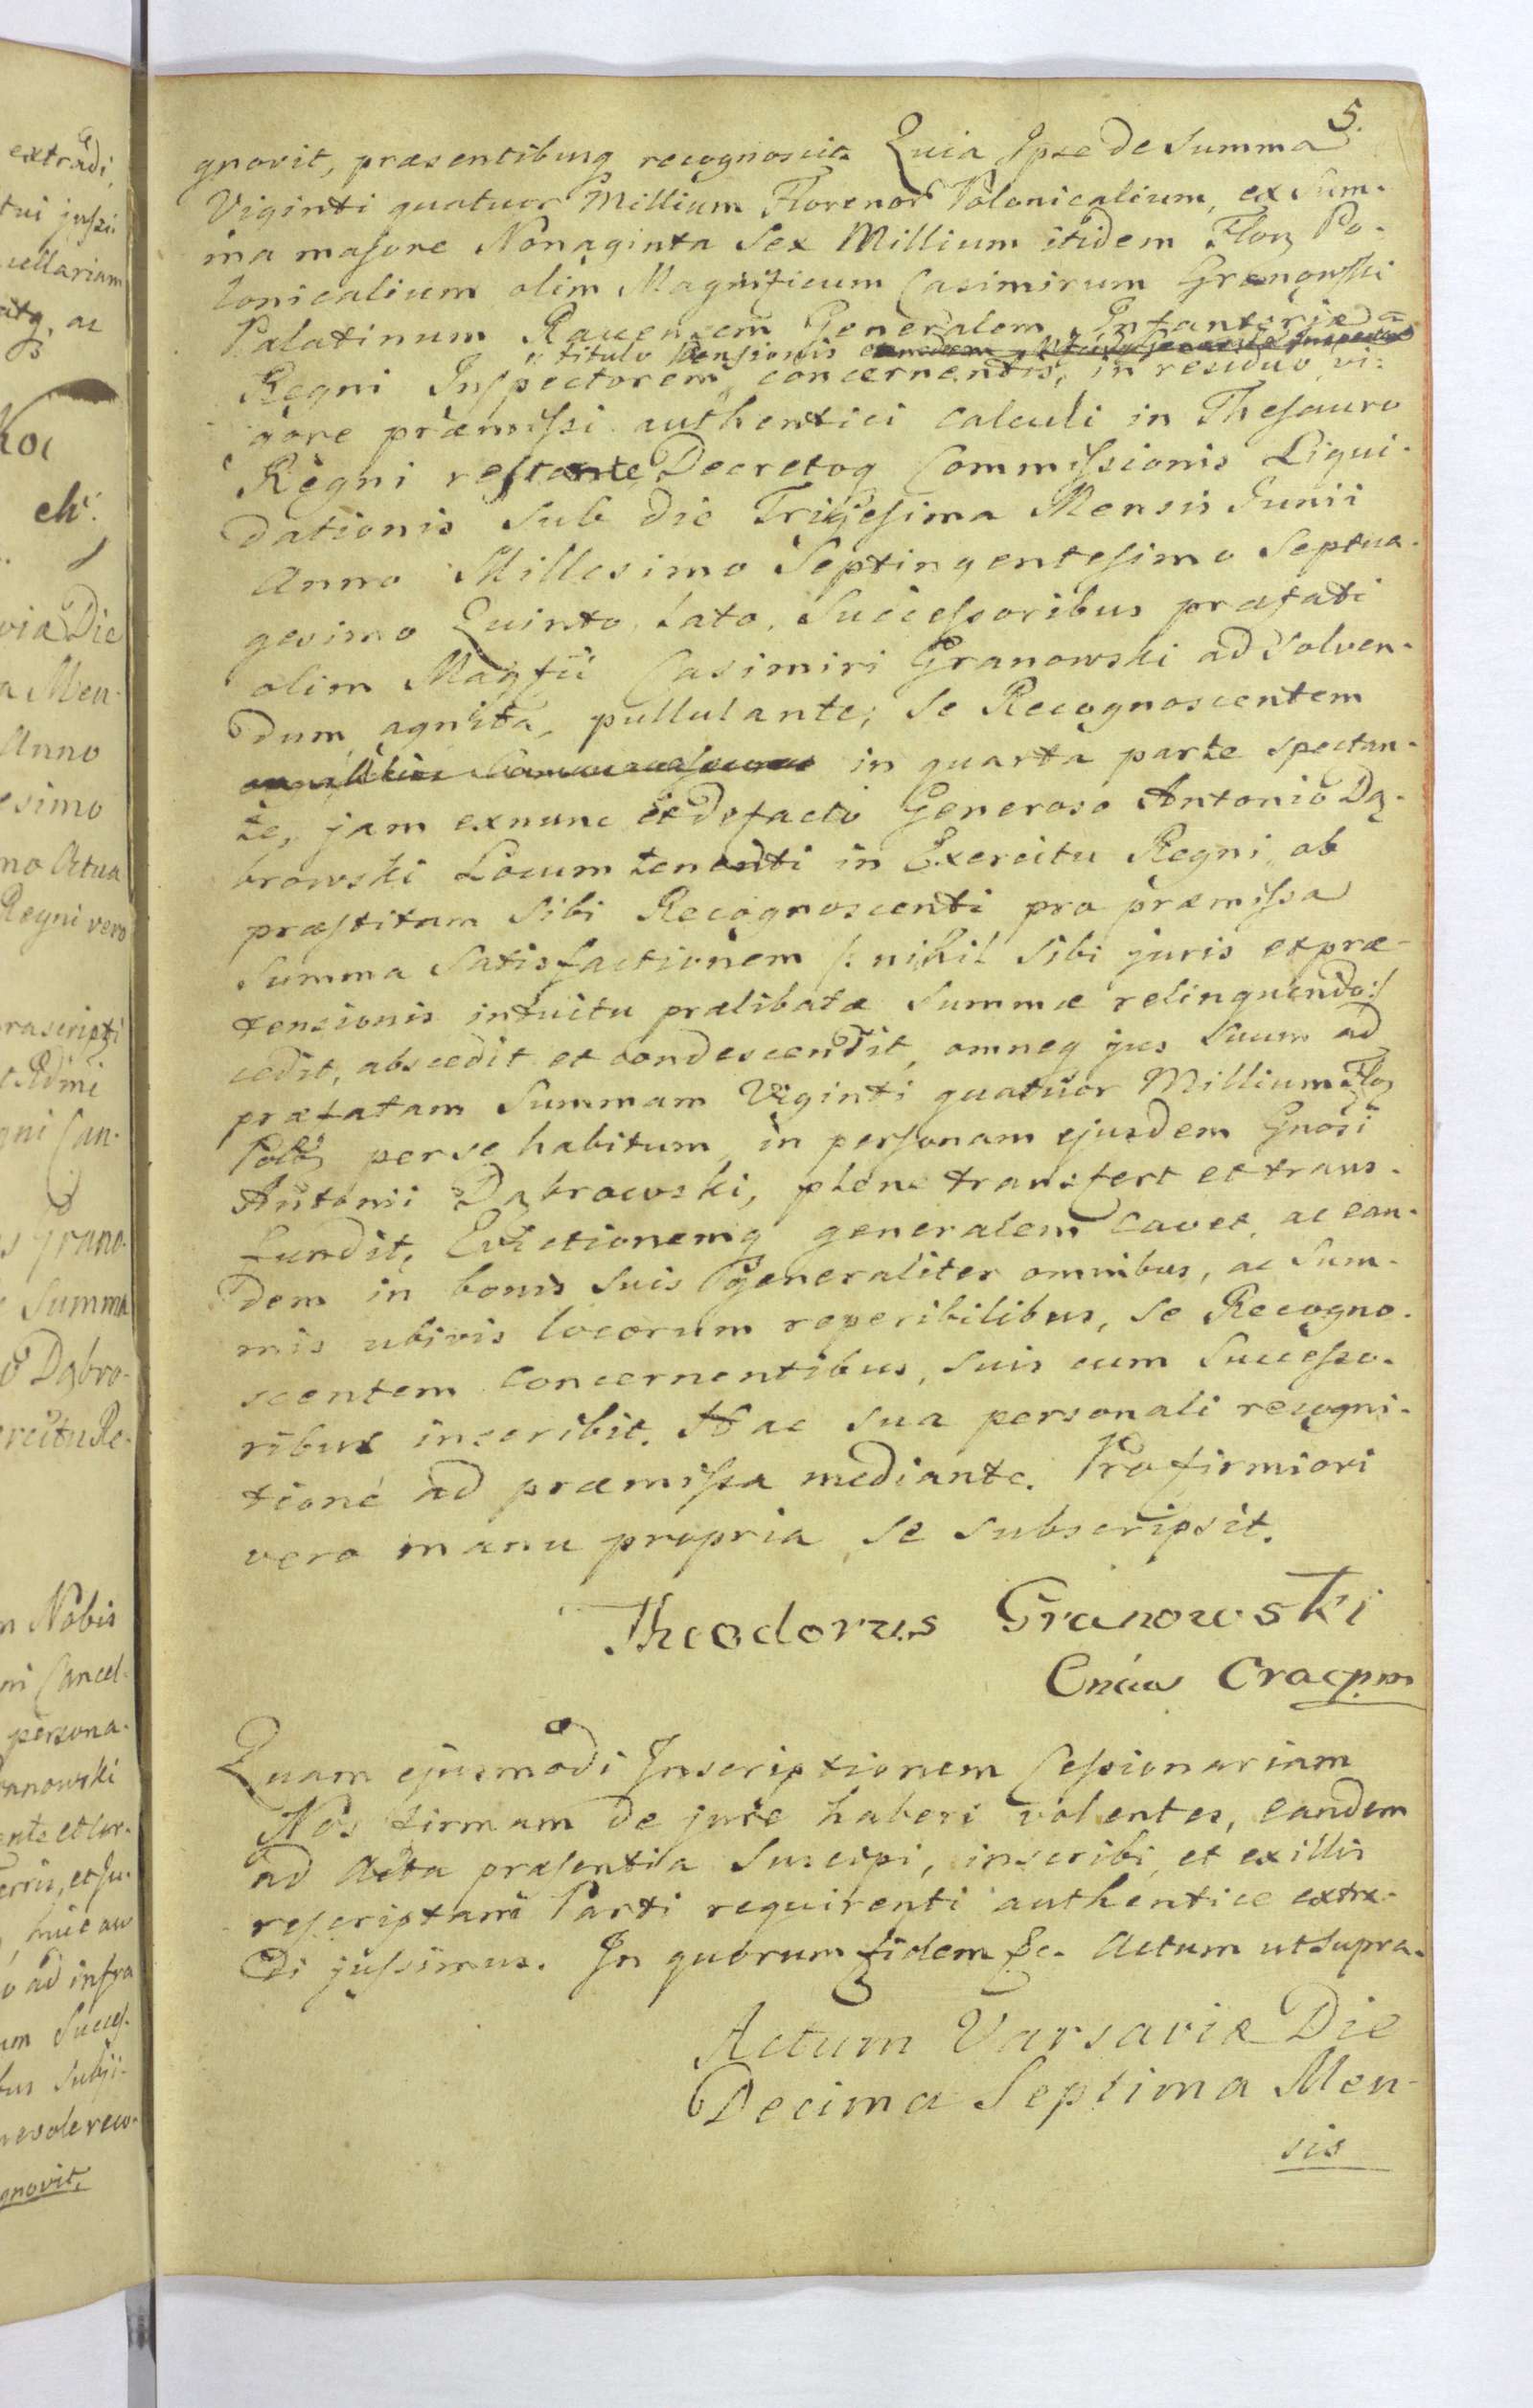 5.
gnovit, præsentibusq recognoscit. Quia Ipse de Summa
Viginti quatuor Millium Florenor Polonicalium, ex Sum-
ma majore Nonaginta Sex Millium itidem Floq Po-
lonicalium olim Magnificum Casimirum Granowski
Palatinum Ravensem Generalem Infanteriæ
titulo Pensionis
Regni Inspectorem concernentis, in residuo vi-
gore præmissi authentici calculi in Thesauro
Regni restante, Decretoq Commissionis Liqui-
dationis sub die Trigesima Mensis Junii
Anno Millesimo Septingentesimo Septua-
gesimo Quinto lato, Successoribus præfati
olim Magfii Casimiri Granowski ad solven-
dum agnita, pullulante; Se Recognoscentem
in quarta parte spectan-
te, jam exnunc et defacto Generoso Antonio Dą-
browski Locum tenenti in Exercitu Regni, ob
præstitam Sibi Recognoscenti pro præmissa
Summa Satisfactionem /: nihil Sibi juris et præ-
tensionis intuitu prælibatæ Summæ relinquendo:/
cedit, abscedit et condescendit, omneq jus Suum ad
præfatam Summam Viginti quatuor Millium Floq
Polq per se habitum, in personam ejusdem Gnosi
Antonii Dąbrowski, plene transfert et trans-
fundit, Evictionemq generalem cavet, ac ean-
dem in bonis Suis generaliter omnibus, ac Sum-
mis ubivis locorum reperibilibus, Se Recogno-
scentem concernentibus, Suis cum Successo-
ribus inscribit. Hac sua personali recogni-
tione ad præmissa mediante. Pro firmiori
vero manu propria se subscripsit.
Theodorus Granowski
Crac pm
Quam ejusmodi Inscriptionem Cessionariam
Nos firmam de jure haberi volentes, eandem
ad Acta præsentia Suscipi, inscribi, et ex illis
rescriptam Parti requirenti authentice extra-
di jussimus. In quorum fidem &c. Actum ut Supra.
Actum Varsaviæ Die
Decima Septima Men-
sis